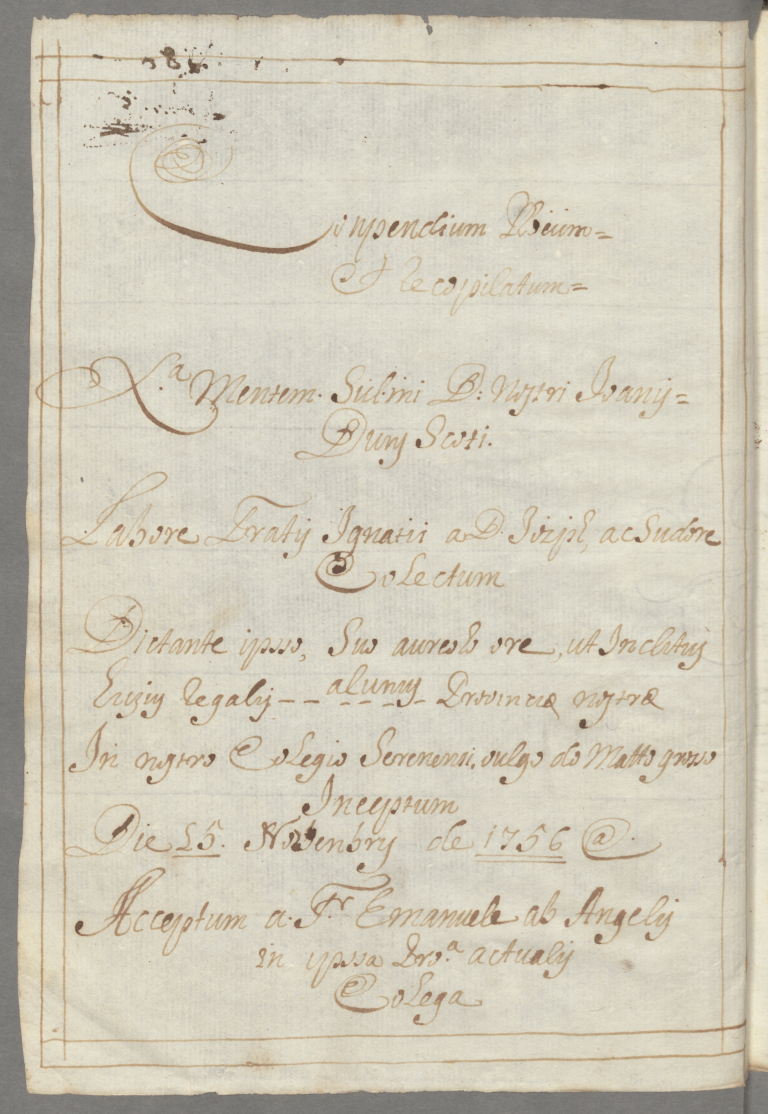 Conpendium
Et Recopilatum=
X.ª Mentem. Subtmi D: Nostri Joanis=
Duns Scoti.
Labore Fratis Ignatii a D. Jozph, ac Sudore
Colectum
Dictante ipsso, Suo aureolo ore, ut Inclitus
huius Regalis - - alunus - Provinciæ nostræ
In nostro Colegio Serenensi, vulgo do Matto grosso
Inceptum
Die 25. Novenbris de 1756 @.
Acceptum a. Fr. Emanuele ab Angelis
in ipssa Pro.ª actualis
Colega